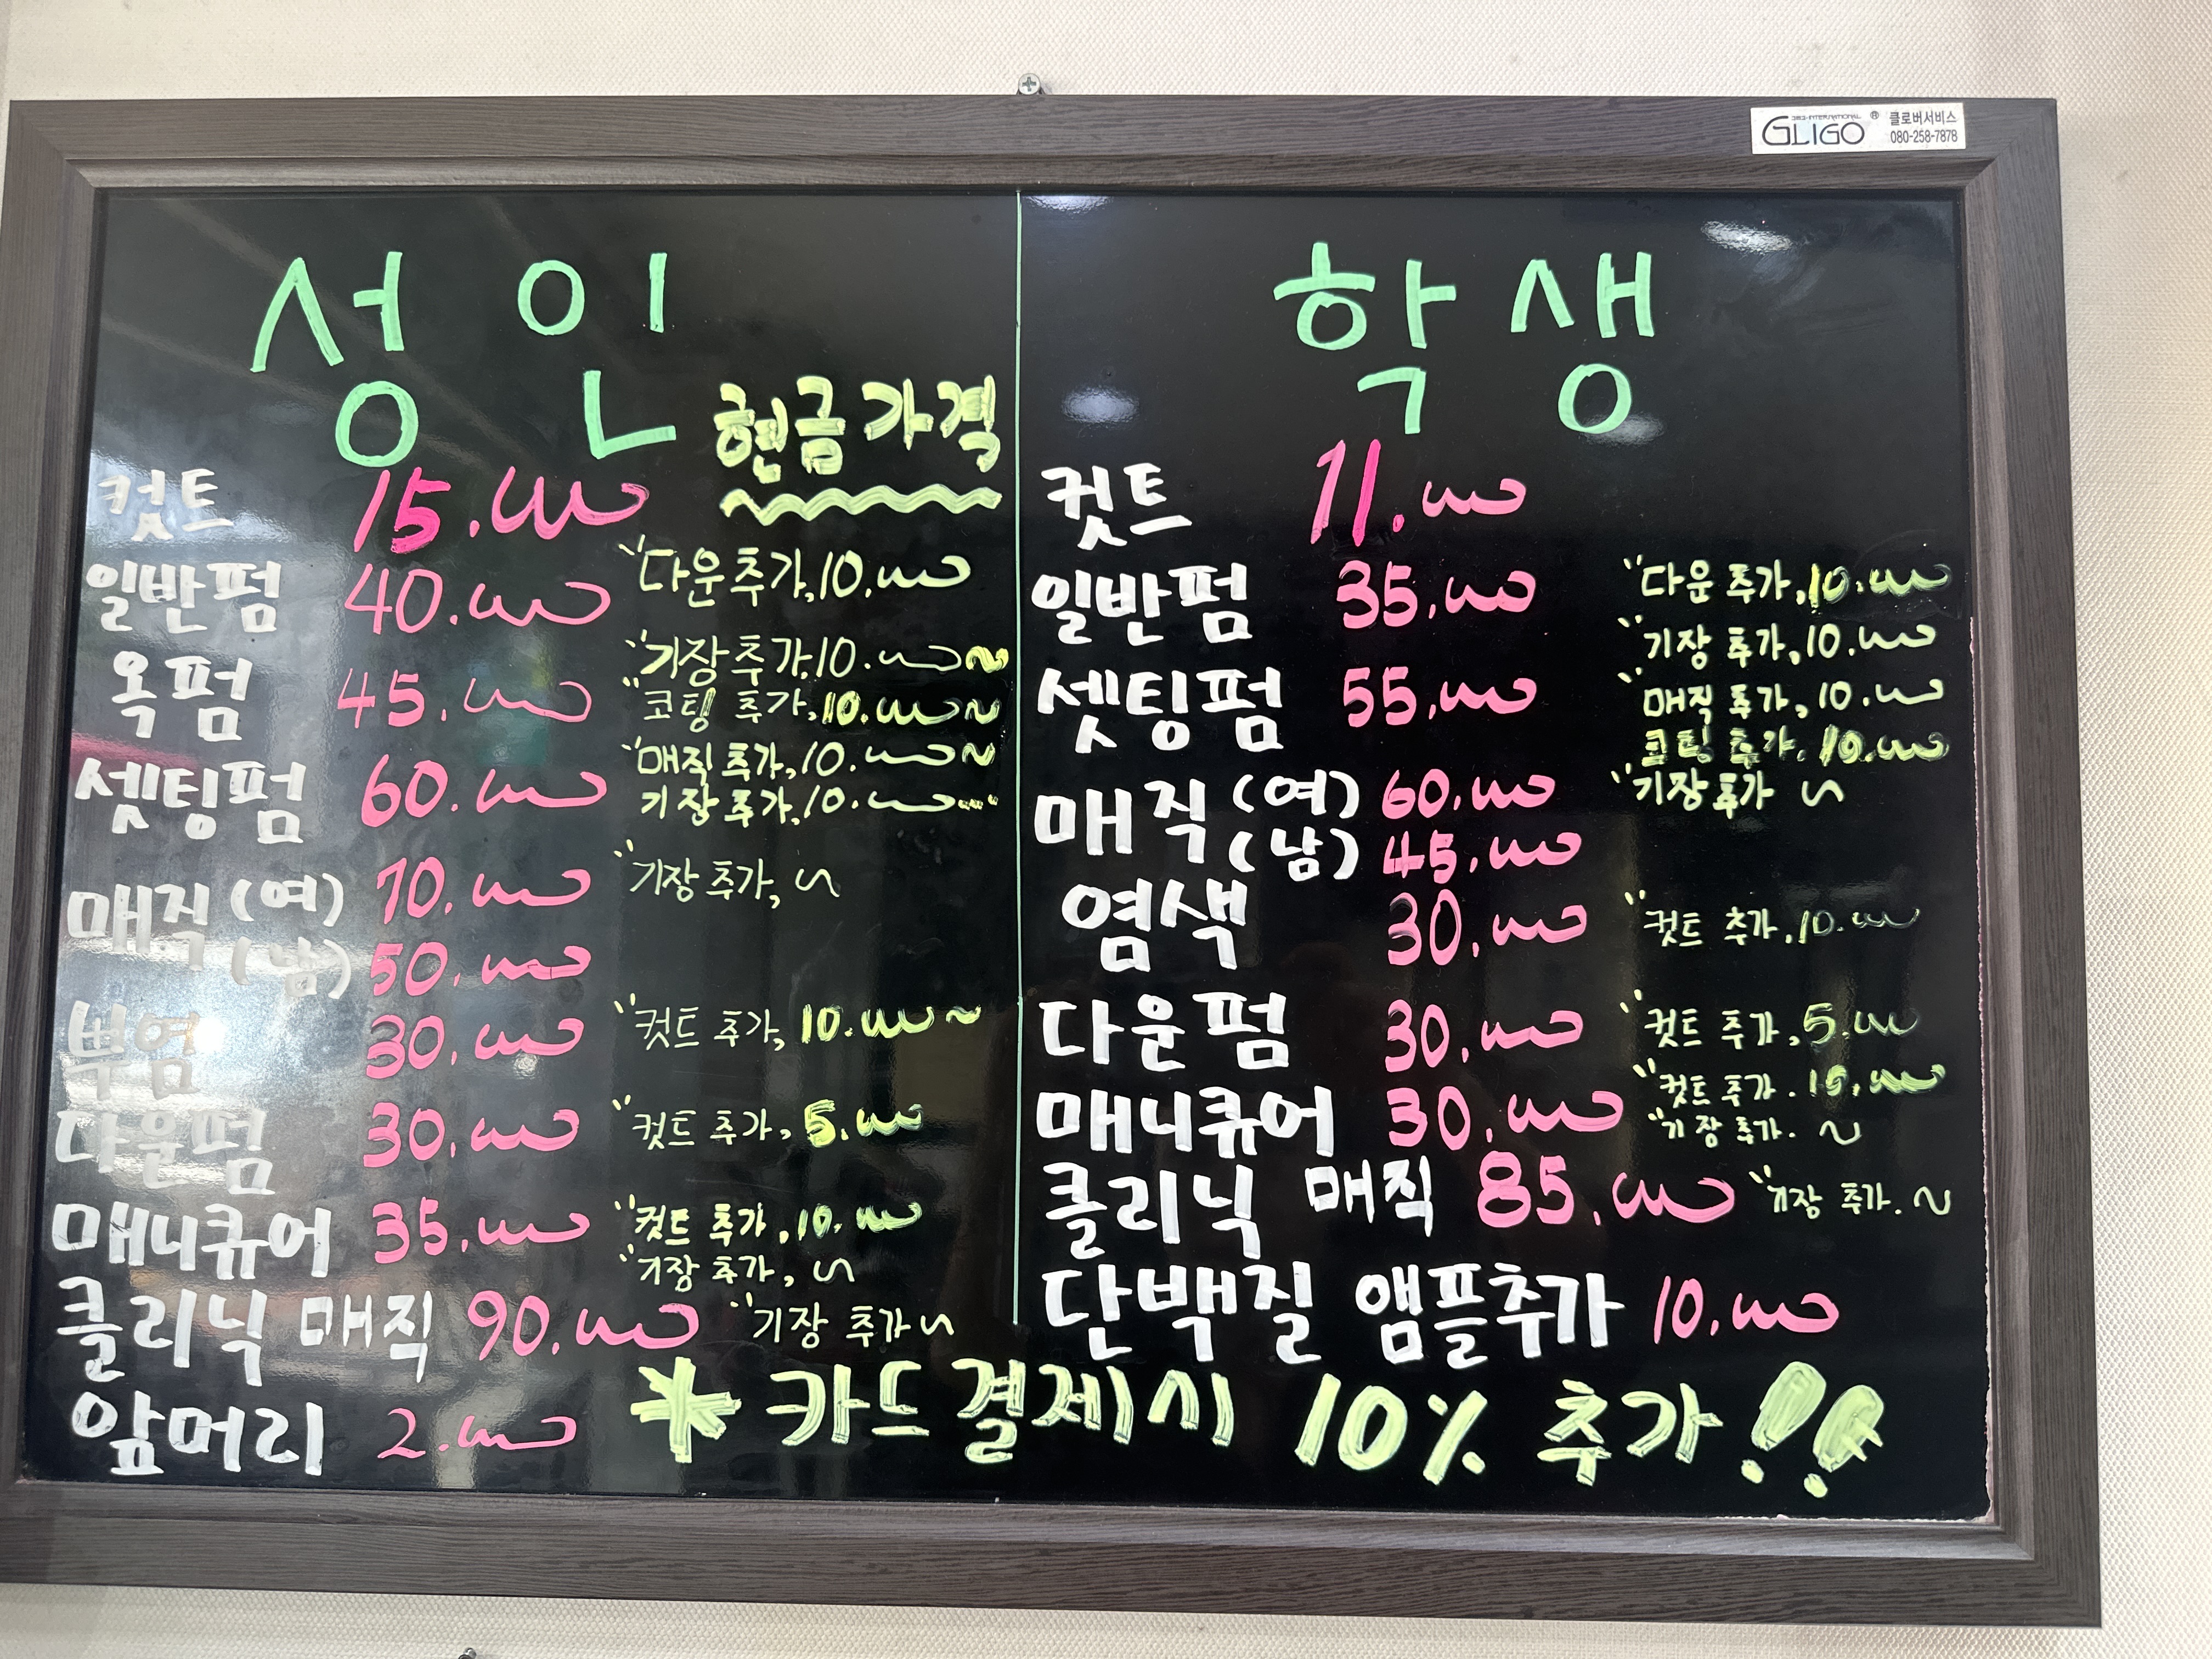 GLIGO ® 클로버서비스
3비3-INTERNATIONAL 080-258-7878
성인
현금가격
컷트 15.000
일반펌 40.000 "다운추가, 10.000
"기장추가, 10.000~
옥펌 45.000 "코팅 추가, 10.000~
"매직 추가, 10.000~
셋팅펌 60.000 기장 추가, 10.000...
매직 (여) 70.000 "기장 추가, ~
(남) 50.000
뿌염 30.000 "컷트 추가, 10.000~
다운펌 30.000 "컷트 추가, 5.000
매니큐어 35.000 "컷트 추가, 10.000
"기장 추가, ~
클리닉 매직 90.000 "기장 추가~
앞머리 2.000
학생
컷트 11.000
일반펌 35.000 "다운 추가, 10.000
"기장 추가, 10.000
셋팅펌 55.000 "매직 추가, 10.000
코팅 추가. 10.000
매직 (여) 60.000 "기장 추가 ~
(남) 45.000
염색 30.000 "컷트 추가, 10.000
다운펌 30.000 "컷트 추가, 5.000
매니큐어 30.000 "컷트 추가. 10.000
"기장 추가. ~
클리닉 매직 85.000 "기장 추가. ~
단백질 앰플추가 10.000
* 카드결제시 10% 추가!!